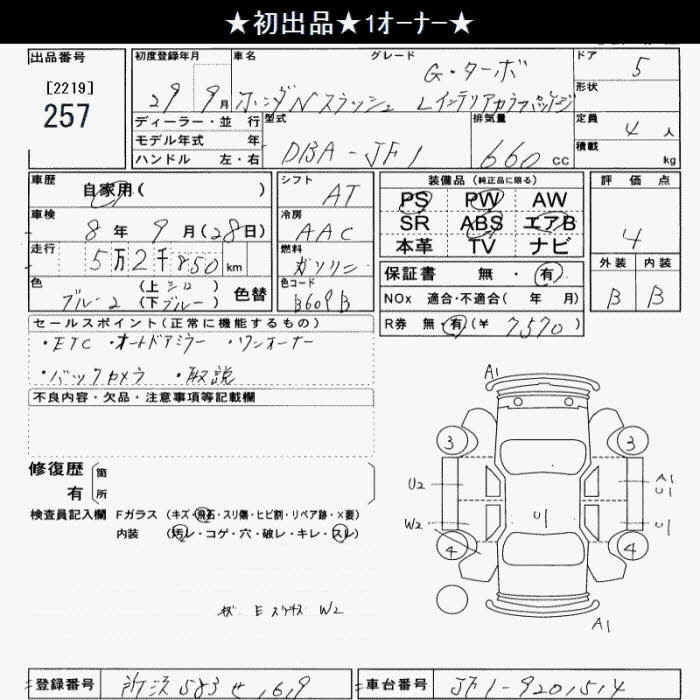 ★初出品★1オーナー★
出品番号
[2219]
257
初度登録年月
29 9月
車名
ホンダNスラッシュ
グレード
G・ターボ
Lインテリアカラーパッケージ
ドア
5
形状
ディーラー・並 行
モデル年式 年
ハンドル 左・右
型式
DBA-JF1
排気量
660 cc
定員
4 人
積載
kg
車歴
自家用(
)
シフト
AT
装備品 (純正品に限る)
PS PW AW
SR ABS エアB
本革 TV ナビ
評価点
4
車検
8 年 9 月(28日)
冷房
AAC
走行
5万2千850 km
燃料
ガソリン
外装 内装
B B
色
ブルー2
(上シロ)
(下ブルー)
色替
色コード
B609B
保証書 無・有
NOx 適合・不適合( 年 月)
R券 無・有(¥ 7570 )
セールスポイント(正常に機能するもの)
・ETC ・オートドアミラー ・ワンオーナー
・バックカメラ ・取説
不良内容・欠品・注意事項等記載欄
修復歴
有
箇
所
検査員記入欄 Fガラス (キズ・飛石・スリ傷・ヒビ割・リペア跡・×要)
内装 (汚レ・コゲ・穴・破レ・キレ・スレ)
W2
A1
3 3
U2
A1
U1
W2
U1
U1
4 4
A1
登録番号
所沢583せ169
車台番号
JF1-9201514